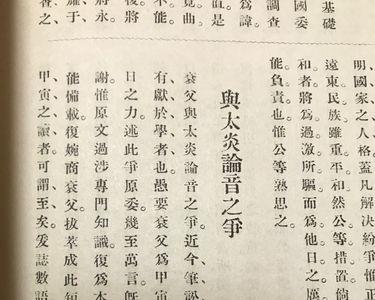 基礎
國委
調查
為諱。
是
曲。
能。
將
將永。
耀于、
之、
明、國家之人格蓋凡解決紛爭惟正
遠東民族雖重平和然公等措置倘
和者將為過激所驅而為他日之厲
能負責也。惟公等熟思之。
與太炎論音之爭
衮父與太炎論音之爭。近今筆訟
有獻於學者也。愚要衮父為甲寅
日之力。述此爭原委幾至萬言。旣
謝。惟原文過涉專門知識。復為本
能備載。復婉商衮父。拔萃成此短
甲寅之讀者可謂至矣。爰誌數語